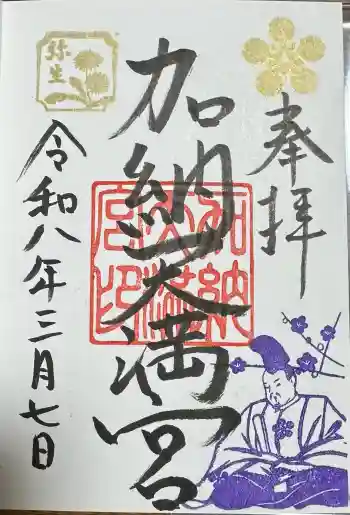 奉拝
加納天満宮
加納天満宮印
弥生
令和八年三月七日